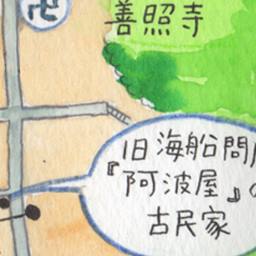 卍
善照寺
旧海船問
『阿波屋』の
古民家